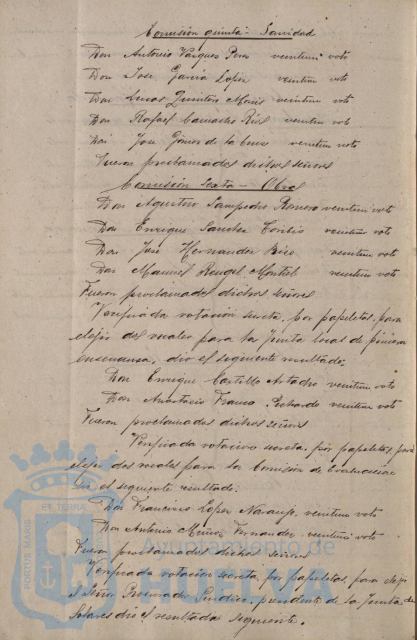 Comisión quinta - Sanidad
Don Antonio Vazquez Perez veintiun voto
Don Jose Garcia Lopez veintiun voto
Don Lucas Quintero veintiun voto
Don Rafael Camacho veintiun voto
Don Jose Gomez de la Cruz veintiun voto
Fueron proclamados dichos señores
Comisión Sexta - Obras
Don Agustin Sampedro Romero veintiun voto
Don Enrique Sanchez Toribio veintiun voto
Don Jose Hernandez veintiun voto
Don Manuel Rengel Montiel veintiun voto
Fueron proclamados dichos señores
Verificada votación secreta, por papeletas, para
elejir dos vocales para la Junta local de primera
enseñanza, dio el siguiente resultado:
Don Enrique Castillo veintiun voto
Don Anastacio Franco veintiun voto
Fueron proclamados dichos señores
Verificada votacion secreta, por papeletas, para
elejir dos vocales para la Comisión de Evaluacion
el siguiente resultado:
Don Francisco Lopez Naranjo, veintiun voto
Don Antonio Muñoz Fernandez veintiun voto
Fueron proclamados dichos señores
Verificada votacion secreta, por papeletas, para elejir
Señor Procurador Sindico, presidente de la Junta de
Solares dio el resultado siguiente.
PORTUS MARIS ET TERRAE
Ayuntamiento de
HUELVA